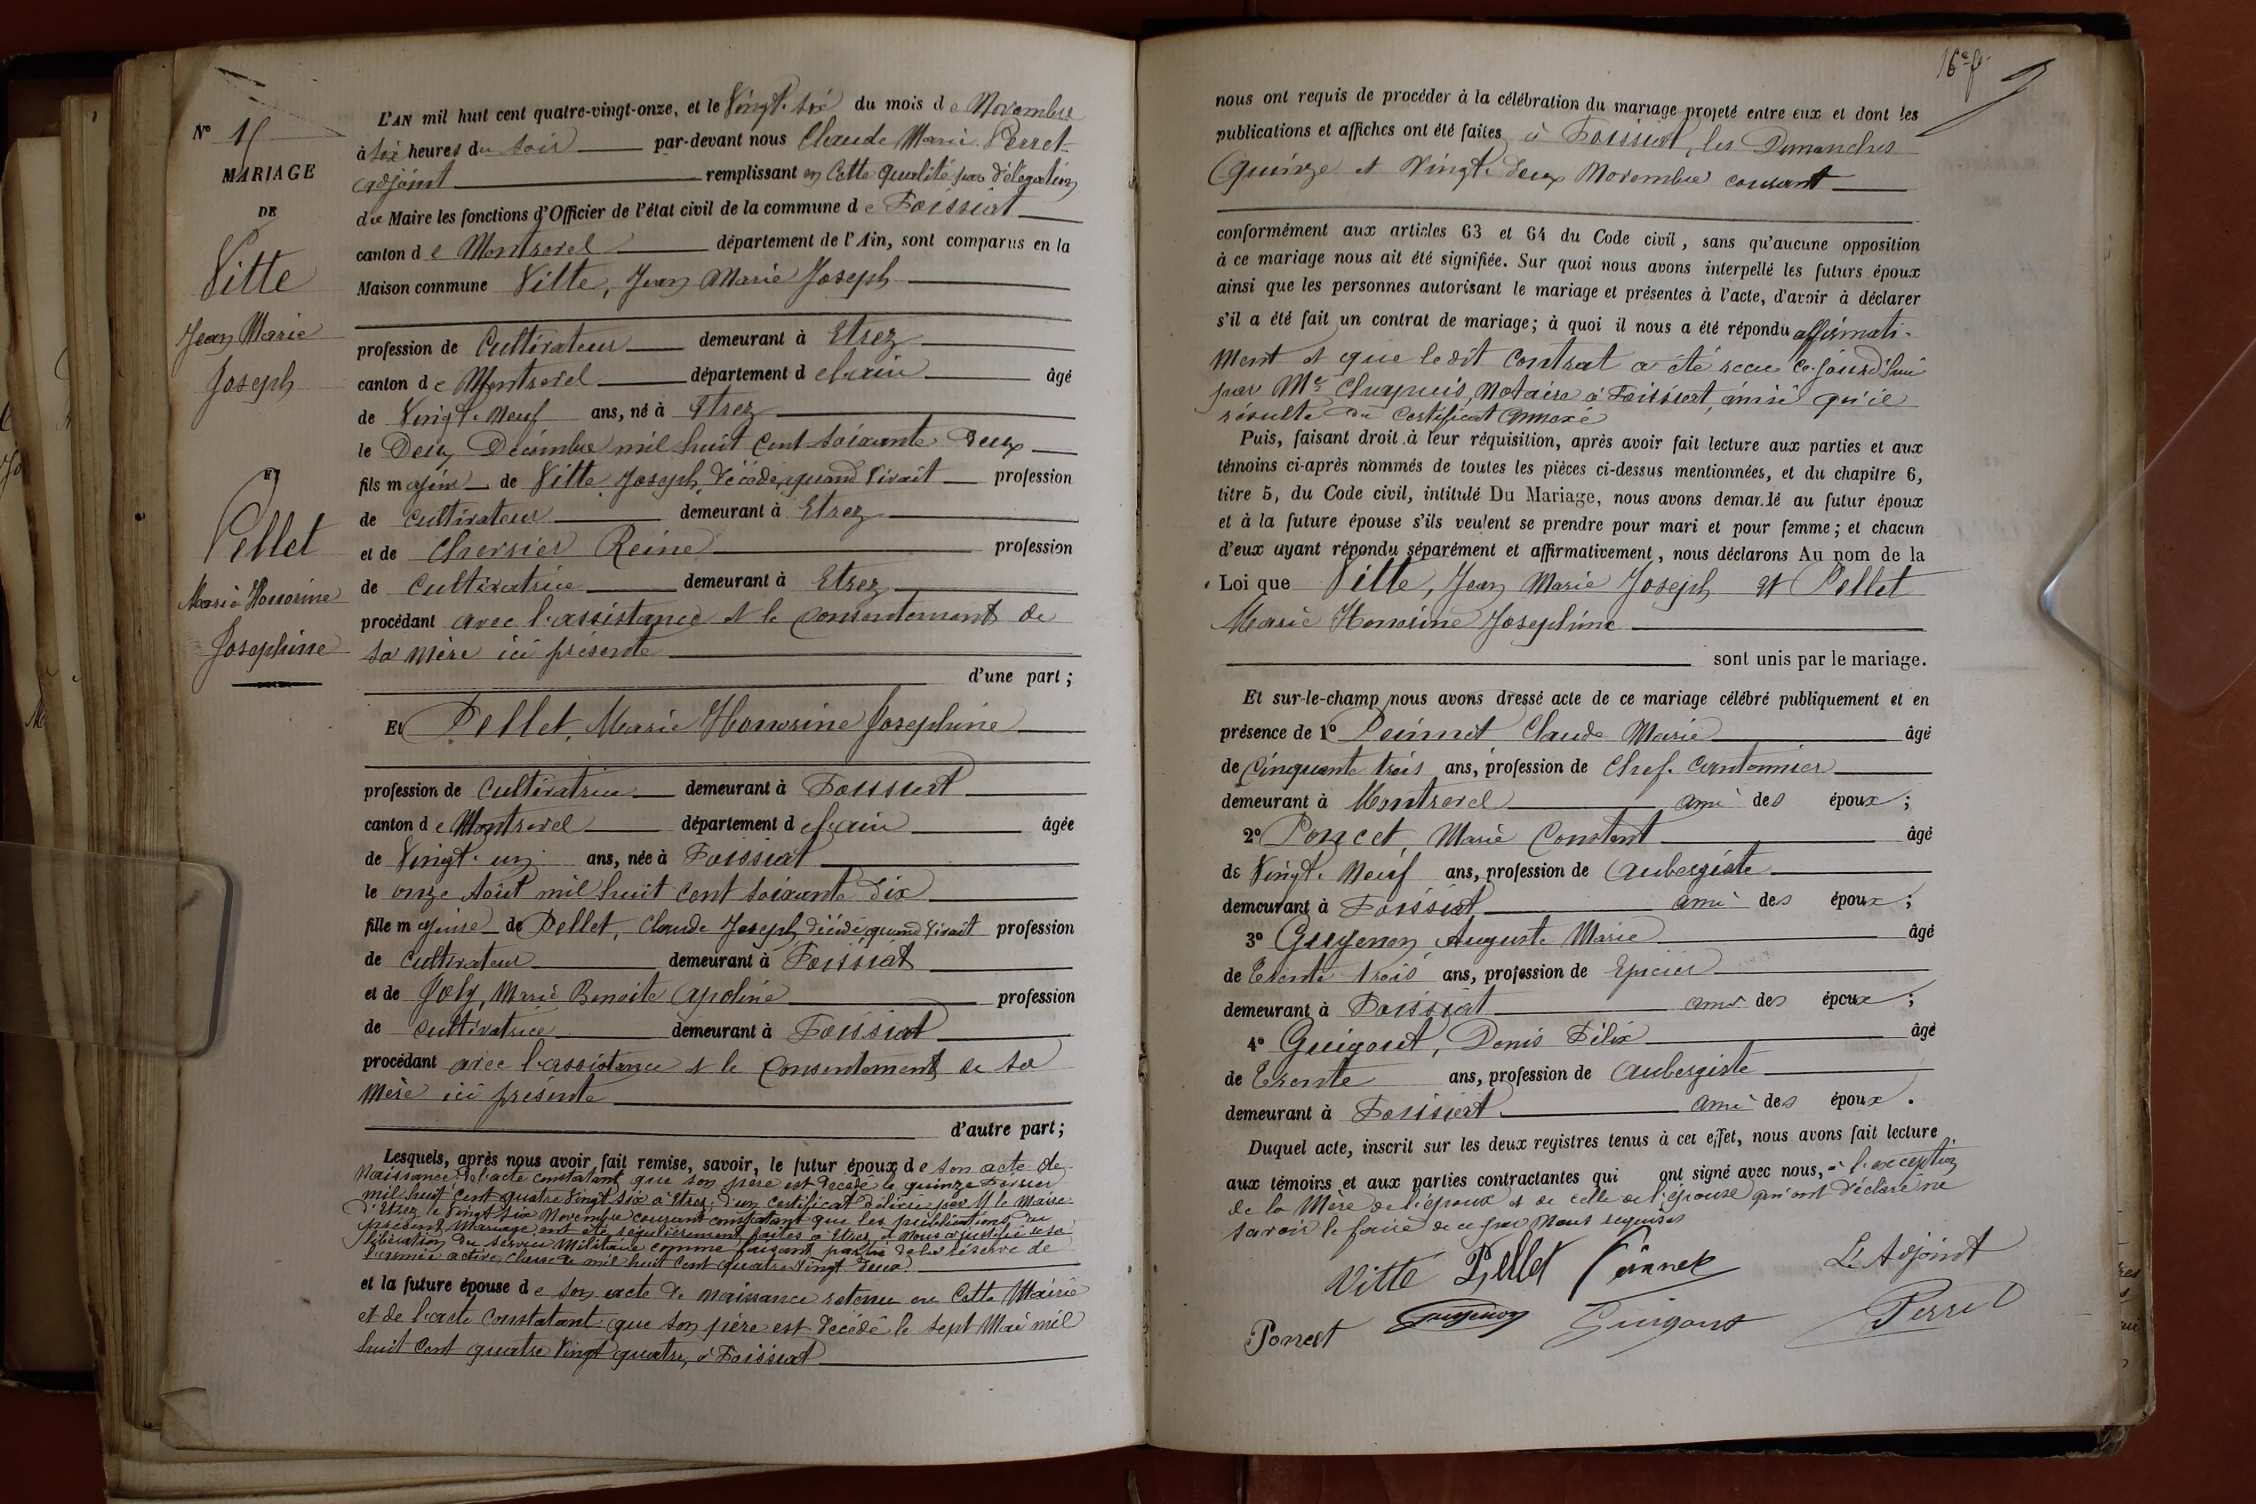 N° 15
MARIAGE
DE
Vitte
Jean Marie
Joseph
ET
Pellet
Marie Honorine
Josephine
L'AN mil huit cent quatre-vingt-onze, et le Vingt-six du mois de Novembre
à six heures du soir par-devant nous Claude Marie Perret
adjoint remplissant en cette qualité par délégation
du Maire les fonctions d'Officier de l'état civil de la commune de Foissiat
canton de Montrevel département de l'Ain, sont comparus en la
Maison commune Vitte, Jean Marie Joseph
profession de Cultivateur demeurant à Etrez
canton de Montrevel département de l'ain âgé
de Vingt-neuf ans, né à Etrez
le Deux Décembre mil huit cent soixante deux
fils majeur de Vitte Joseph, décédé, quand vivait profession
de cultivateur demeurant à Etrez
et de Chevrier Reine profession
de cultivatrice demeurant à Etrez
procédant avec l'assistance et le consentement de
sa mère ici présente
d'une part;
Et Pellet, Marie Honorine Josephine
profession de cultivatrice demeurant à Foissiat
canton de Montrevel département de l'ain âgée
de Vingt-un ans, née à Foissiat
le onze Août mil huit cent soixante dix
fille majeure de Pellet, Claude Joseph, décédé, quand vivait profession
de cultivateur demeurant à Foissiat
et de Joly, Marie Benoite Apoline profession
de cultivatrice demeurant à Foissiat
procédant avec l'assistance et le consentement de sa
mère ici présente
d'autre part;
Lesquels, après nous avoir fait remise, savoir, le futur époux de son acte de
naissance, de l'acte constatant que son père est décédé le quinze Février
mil huit cent quatre vingt six à Etrez; d'un certificat délivré par M. le Maire
d'Etrez le vingt six Novembre courant constatant que les publications du
présent mariage ont été régulièrement faites à Etrez, et nous a justifié de sa
libération du service militaire comme faisant partie de la réserve de
l'armée active, classe de mil huit cent quatre vingt deux.
et la future épouse de son acte de naissance retenu en cette Mairie
et de l'acte constatant que son père est décédé le sept Mai mil
huit cent quatre vingt quatre, à Foissiat
16e f.
nous ont requis de procéder à la célébration du mariage projeté entre eux et dont les
publications et affiches ont été faites à Foissiat, les Dimanches
Quinze et Vingt-deux Novembre courant
conformément aux articles 63 et 64 du Code civil, sans qu'aucune opposition
à ce mariage nous ait été signifiée. Sur quoi nous avons interpellé les futurs époux
ainsi que les personnes autorisant le mariage et présentes à l'acte, d'avoir à déclarer
s'il a été fait un contrat de mariage; à quoi il nous a été répondu affirmati-
ment et que ledit contrat a été reçu ce-jourd'hui
par Me Chapuis, Notaire à Foissiat, ainsi qu'il
résulte du certificat annexé
Puis, faisant droit à leur réquisition, après avoir fait lecture aux parties et aux
témoins ci-après nommés de toutes les pièces ci-dessus mentionnées, et du chapitre 6,
titre 5, du Code civil, intitulé Du Mariage, nous avons demandé au futur époux
et à la future épouse s'ils veulent se prendre pour mari et pour femme; et chacun
d'eux ayant répondu séparément et affirmativement, nous déclarons Au nom de la
Loi que Vitte, Jean Marie Joseph et Pellet
Marie Honorine Josephine
sont unis par le mariage.
Et sur-le-champ nous avons dressé acte de ce mariage célébré publiquement et en
présence de 1° Peinnet Claude Marie âgé
de Cinquante trois ans, profession de Chef-Cantonnier
demeurant à Montrevel ami des époux;
2° Poncet, Marie Constant âgé
de Vingt-neuf ans, profession de Aubergiste
demeurant à Foissiat ami des époux;
3° Guyenon, Auguste Marie âgé
de Trente trois ans, profession de Epicier
demeurant à Foissiat ami des époux;
4° Guigout, Denis Félix âgé
de Trente ans, profession de Aubergiste
demeurant à Foissiat ami des époux.
Duquel acte, inscrit sur les deux registres tenus à cet effet, nous avons fait lecture
aux témoins et aux parties contractantes qui ont signé avec nous, à l'exception
de la Mère de l'époux et de celle de l'épouse qui ont déclaré ne
savoir le faire de ce par nous requises
Vitte Pellet Peinnet L'Adjoint
Poncet Guyenon Guigout Perret